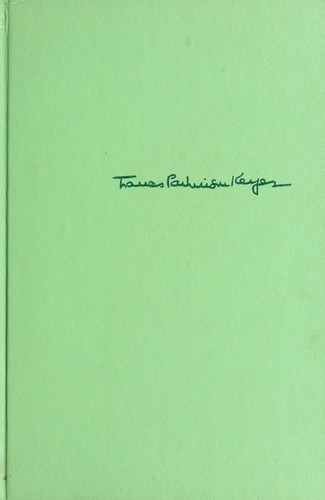 Frances Parkinson Keyes